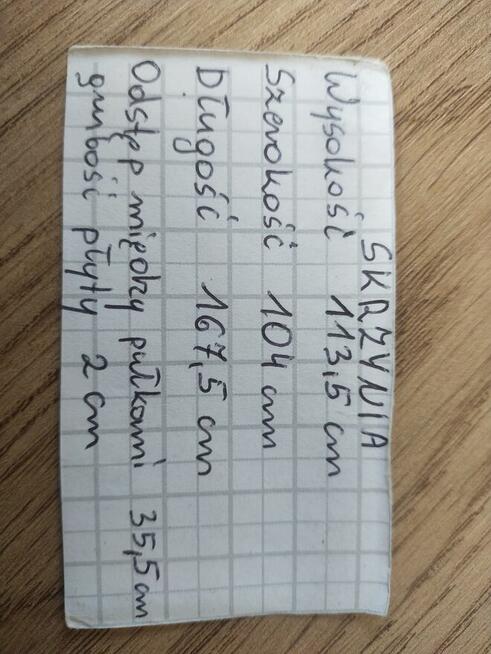 SKRZYNIA
Wysokość 113,5 cm
Szerokość 104 cm
Długość 167,5 cm
Odstęp między pułkami 35,5 cm
grubość płyty 2 cm